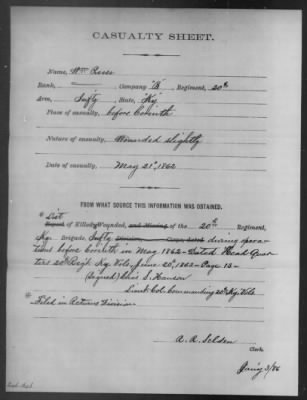 CASUALTY SHEET.
Name, Wm Rees
Rank, Company "B", Regiment, 20th
Arm, Infty, State, Ky.
Place of casualty, before Corinth
Nature of casualty, Wounded slightly
Date of casualty, May 21st, 1862
FROM WHAT SOURCE THIS INFORMATION WAS OBTAINED.
* List
Report of Killed, Wounded, and Missing of the 20th Regiment,
Ky. Brigade, Infty Division Corps, dated during opera-
tions before Corinth in May, 1862 - Dated Head Quar-
ters 20 Regt. Ky Vols, June 20, 1862 - Page 13 -
(Signed) Chas S. Hanson
Lieut Col. Commanding 20 Ky. Vols.
* Filed in Actions Division
A. R. Selden
Clerk.